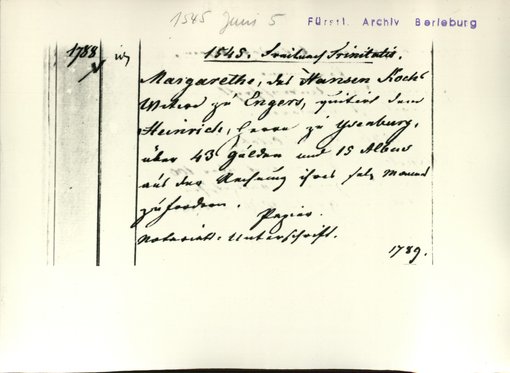 1545 Juni 5
Fürstl. Archiv Berleburg
1788
1545. Freit nach Trinitatis.
Margarethe, des Hansen Kochs
Witwe zu Engers, quitirt dem
Heinrich, Herrn zu Ysenburg,
über 43 Gulden und 15 Albus
aus der Rechnung ihres sel. Mannes
zu fordern.
Papier.
Notariats-Unterschrift.
1789.